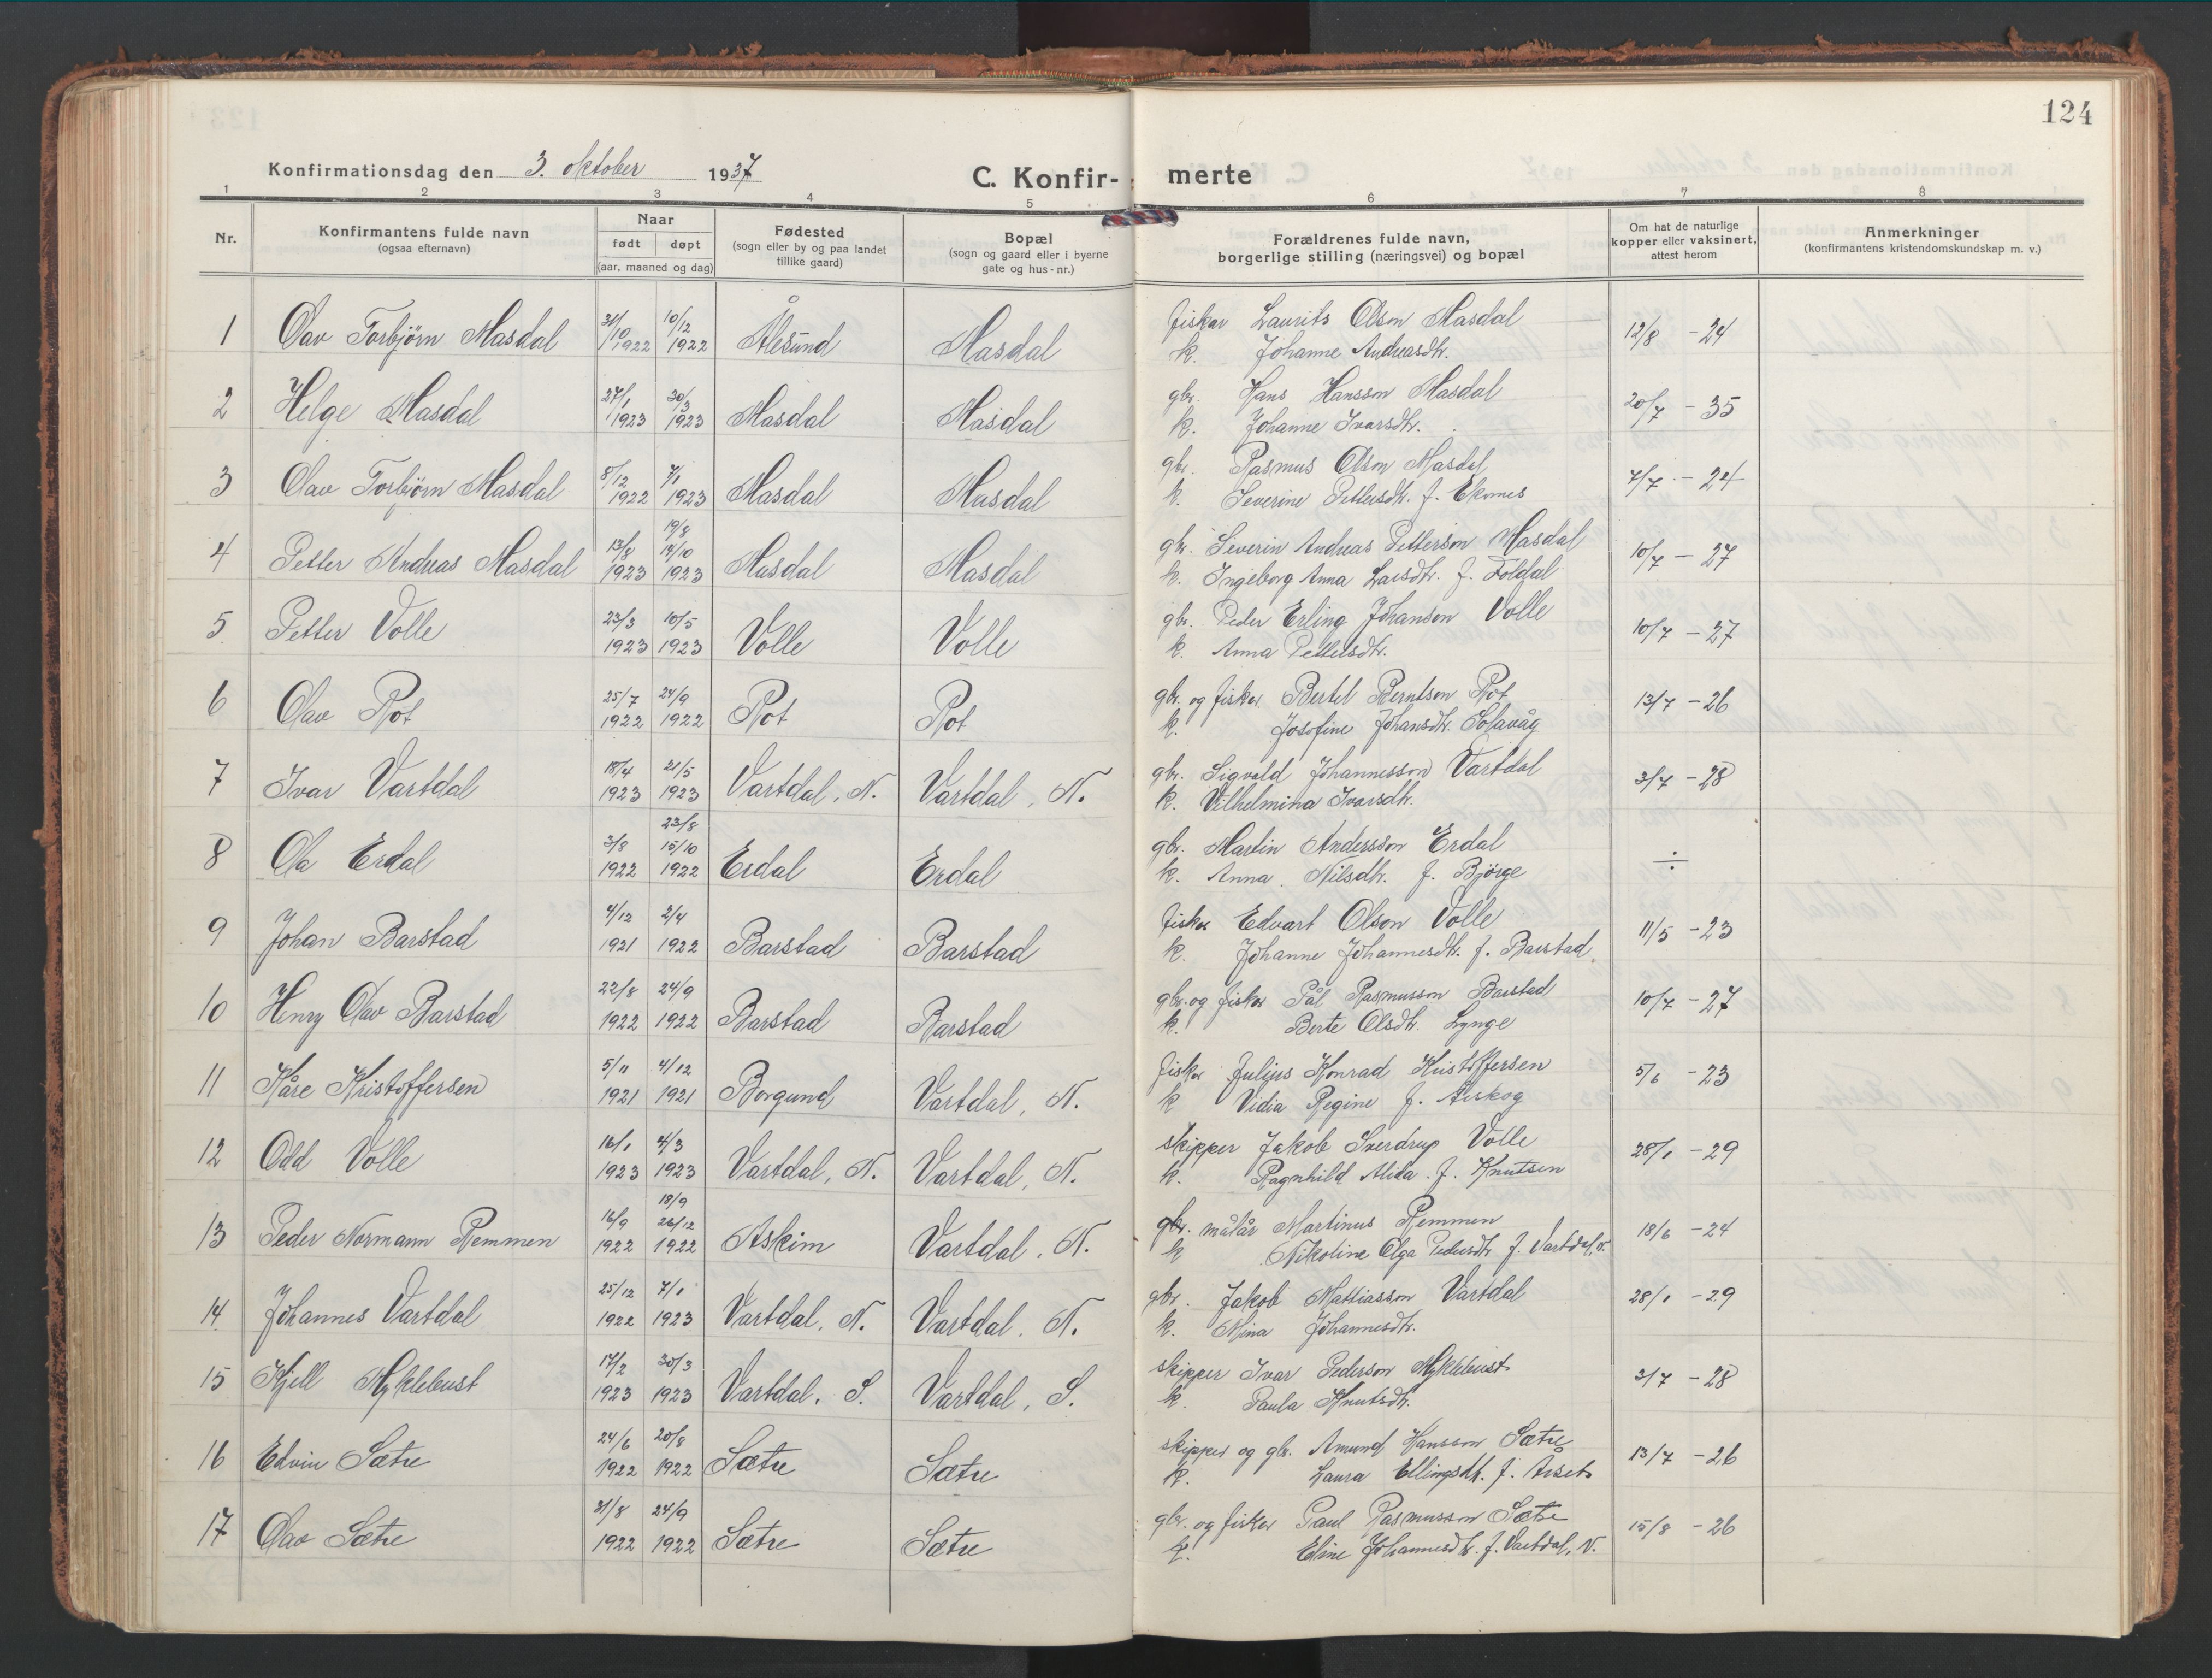 124
Konfirmationsdag den 3. oktober 1937
C. Konfir- merte
1 2 3 4 5 6 7 8
Nr.
Konfirmantens fulde navn
(ogsaa efternavn)
Naar
født døpt
(aar, maaned og dag)
Fødested
(sogn eller by og paa landet
tillike gaard)
Bopæl
(sogn og gaard eller i byerne
gate og hus-nr.)
Forældrenes fulde navn,
borgerlige stilling (næringsvei) og bopæl
Om hat de naturlige
kopper eller vaksinert,
attest herom
Anmerkninger
(konfirmantens kristendomskundskap m. v.)
1 Olav Torbjørn Masdal 31/10 1922 10/12 1922 Ålesund Masdal fiskar Laurits Olson Masdal 12/8 - 24
k. Johanne Andreasdtr.
2 Helge Masdal 27/1 1923 30/3 1923 Masdal Masdal gbr. Hans Hansson Masdal 20/7 - 35
k. Johanne Ivarsdtr.
3 Olav Torbjørn Masdal 8/12 1922 7/1 1923 Masdal Masdal gbr. Rasmus Olson Masdal 7/7 - 24
k. Severine Pettersdtr. f. Eknes
4 Petter Andreas Masdal 13/8 1923 19/8 14/10 1923 Masdal Masdal gbr. Severin Andreas Petterson Masdal 10/7 - 27
k. Ingeborg Anna Larsdtr. f. Foldal
5 Petter Volle 23/3 1923 10/5 1923 Volle Volle gbr. Peder Erling Johanson Volle 10/7 - 27
k. Anna Pettersdtr.
6 Olav Rot 25/7 1922 24/9 1922 Rot Rot gbr. og fisker Bertel Berntson Rot 13/7 - 26
k. Josefine Johansdtr. Solavåg
7 Ivar Vartdal 18/4 1923 21/5 1923 Vartdal, N. Vartdal, N. gbr. Sigvald Johannesson Vartdal 3/7 - 28
k. Vilhelmina Ivarsdtr.
8 Ola Erdal 3/8 1922 23/8 15/10 1922 Erdal Erdal gbr. Martin Andersson Erdal ÷
k. Anna Nilsdtr. f. Bjørge
9 Johan Barstad 4/12 1921 2/4 1922 Barstad Barstad fisker Edvart Olson Volle 11/5 - 23
k. Johanne Johannesdtr. f. Barstad.
10 Henry Olav Barstad 22/8 1922 24/9 1922 Barstad Barstad gbr. og fisker Pål Rasmusson Barstad 10/7 - 27
k. Berte Olsdtr. Lynge
11 Kåre Kristoffersen 5/11 1921 4/12 1921 Borgund Vartdal, N. fisker Julius Konrad Kristoffersen 5/6 - 23
k Vidia Regine f. Aiskog
12 Odd Volle 16/1 1923 4/3 1923 Vartdal, N. Vartdal, N. skipper Jakob Sverdrup Volle 28/1 - 29
k. Ragnhild Alida f. Knutsen
13 Peder Normann Remmen 16/9 1922 18/9 26/12 1922 Askim Vartdal. N. gbr. målår Martinus Remmen 18/6 - 24
k Nikoline Olga Pedersdtr. f. Vartdal, N.
14 Johannes Vartdal 25/12 1922 7/1 1923 Vartdal, N. Vartdal. N. gbr. Jakob Mattiasson Vartdal 28/1 - 29
k. Mina Johannesdtr.
15 Kjell Myklebust 17/2 1923 30/3 1923 Vartdal, S. Vartdal, S. skipper Ivar Pederson Myklebust 3/7 - 28
k. Paula Knutsdtr.
16 Edvin Sætre 24/6 1922 20/8 1922 Sætre Sætre skipper og gbr. Amund Hansson Sætre 13/7 - 26
k. Laura Ellingsdtr. f. Årset
17 Olav Sætre 31/8 1922 24/9 1922 Sætre Sætre gbr. og fisker Paul Rasmusson Sætre 15/8 - 26
k. Eline Johannesdtr. f. Vartdal, N.